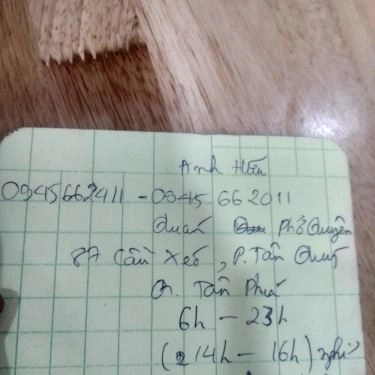 Anh Hiếu
0945662411 - 0945 662011
Quán Phở Quyên
87 Cầu Xéo, P. Tân Quý
Q. Tân Phú
6h - 23h
(14h - 16h) nghỉ